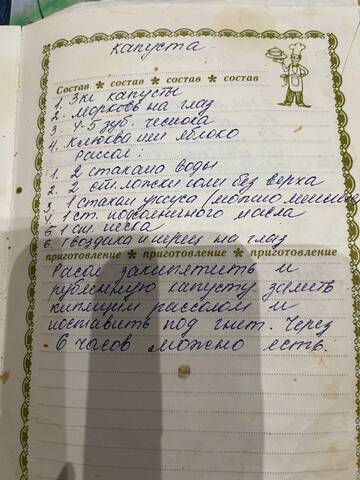 капуста
Состав * состав * состав * состав
1. 3кг капусты
2. морковь на глаз
3. 4-5 зуб. чеснока
4. Клюква или яблоко
рассол:
1. 2 стакана воды
2. 2 ст. ложки соли без верха
3. 1 стакан уксуса (можно меньше
4. 1 ст. подсолнечного масла
5. 1 ст. песка
6. гвоздика и перец на глаз
приготовление * приготовление * приготовление
Расол закипятить и
рубленную капусту залить
кипящим рассолом и
поставить под гнет. Через
6 часов можно есть.